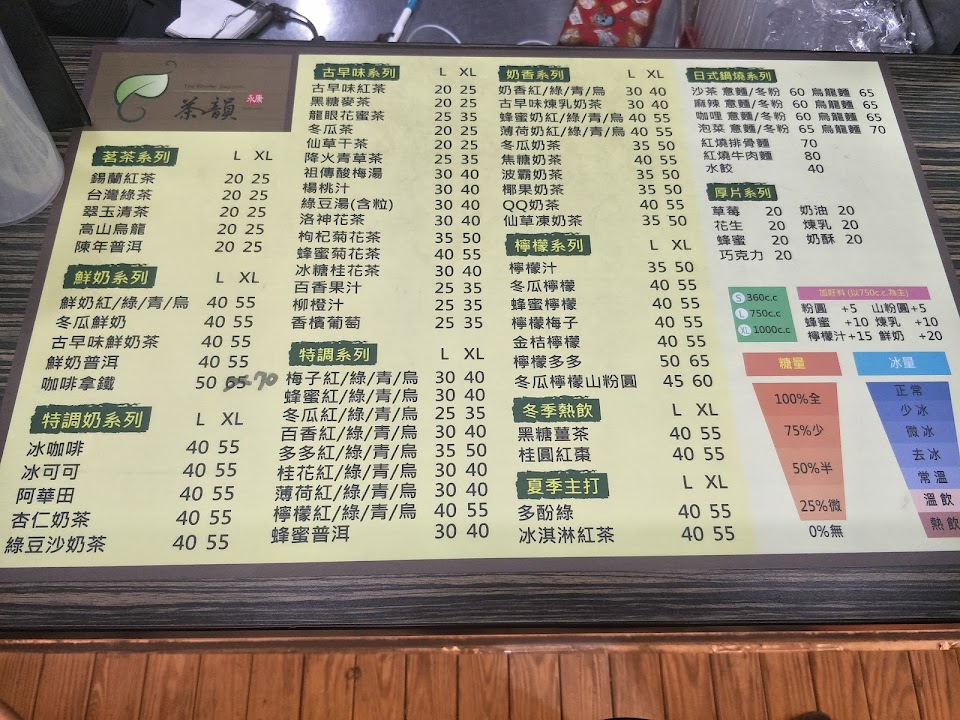 茶韻
永康
茗茶系列 L XL
錫蘭紅茶 20 25
台灣綠茶 20 25
翠玉清茶 20 25
高山烏龍 20 25
陳年普洱 20 25
鮮奶系列 L XL
鮮奶紅/綠/青/烏 40 55
冬瓜鮮奶 40 55
古早味鮮奶茶 40 55
鮮奶普洱 40 55
咖啡拿鐵 50 65 70
特調奶系列 L XL
冰咖啡 40 55
冰可可 40 55
阿華田 40 55
杏仁奶茶 40 55
綠豆沙奶茶 40 55
古早味系列 L XL
古早味紅茶 20 25
黑糖麥茶 20 25
龍眼花蜜茶 25 35
冬瓜茶 20 25
仙草干茶 20 25
降火青草茶 25 35
祖傳酸梅湯 30 40
楊桃汁 30 40
綠豆湯(含粒) 30 40
洛神花茶 30 40
枸杞菊花茶 35 50
蜂蜜菊花茶 40 55
冰糖桂花茶 30 40
百香果汁 25 35
柳橙汁 25 35
香檳葡萄 25 35
特調系列 L XL
梅子紅/綠/青/烏 30 40
蜂蜜紅/綠/青/烏 30 40
冬瓜紅/綠/青/烏 25 35
百香紅/綠/青/烏 30 40
多多紅/綠/青/烏 35 50
桂花紅/綠/青/烏 30 40
薄荷紅/綠/青/烏 30 40
檸檬紅/綠/青/烏 40 55
蜂蜜普洱 30 40
奶香系列 L XL
奶香紅/綠/青/烏 30 40
古早味煉乳奶茶 30 40
蜂蜜奶紅/綠/青/烏 40 55
薄荷奶紅/綠/青/烏 40 55
冬瓜奶茶 35 50
焦糖奶茶 40 55
波霸奶茶 35 50
椰果奶茶 35 50
QQ奶茶 40 55
仙草凍奶茶 35 50
檸檬系列 L XL
檸檬汁 35 50
冬瓜檸檬 40 55
蜂蜜檸檬 40 55
檸檬梅子 40 55
金桔檸檬 40 55
檸檬多多 50 65
冬瓜檸檬山粉圓 45 60
冬季熱飲 L XL
黑糖薑茶 40 55
桂圓紅棗 40 55
夏季主打 L XL
多酚綠 40 55
冰淇淋紅茶 40 55
日式鍋燒系列
沙茶 意麵/冬粉 60 烏龍麵 65
麻辣 意麵/冬粉 60 烏龍麵 65
咖哩 意麵/冬粉 60 烏龍麵 65
泡菜 意麵/冬粉 65 烏龍麵 70
紅燒排骨麵 70
紅燒牛肉麵 80
水餃 40
厚片系列
草莓 20 奶油 20
花生 20 煉乳 20
蜂蜜 20 奶酥 20
巧克力 20
S 360c.c
L 750c.c
XL 1000c.c
加旺料 (以750c.c.為主)
粉圓 +5 山粉圓+5
蜂蜜 +10 煉乳 +10
檸檬汁+15 鮮奶 +20
糖量
100%全
75%少
50%半
25%微
0%無
冰量
正常
少冰
微冰
去冰
常溫
溫飲
熱飲